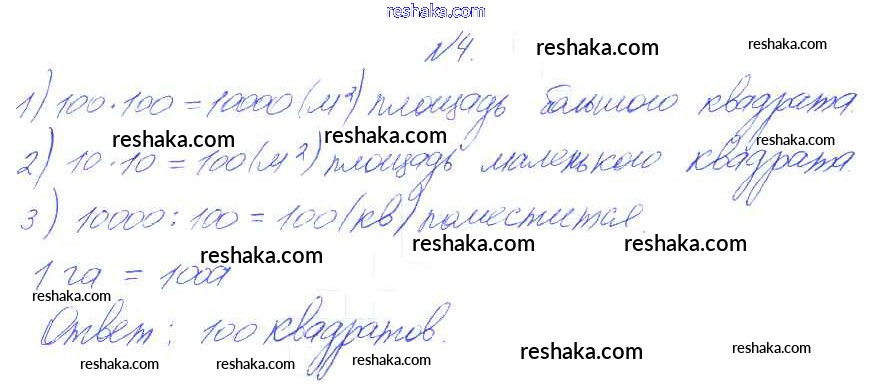 reshaka.com
№4.
reshaka.com
1) 100·100 = 10000 (м²) площадь большого квадрата.
reshaka.com reshaka.com reshaka.com
2) 10·10 = 100 (м²) площадь маленького квадрата.
reshaka.com reshaka.com
3) 10000 : 100 = 100 (кв) поместится.
reshaka.com reshaka.com reshaka.com
1 га = 100а
reshaka.com
Ответ: 100 квадратов.
reshaka.com reshaka.com reshaka.com reshaka.com reshaka.com